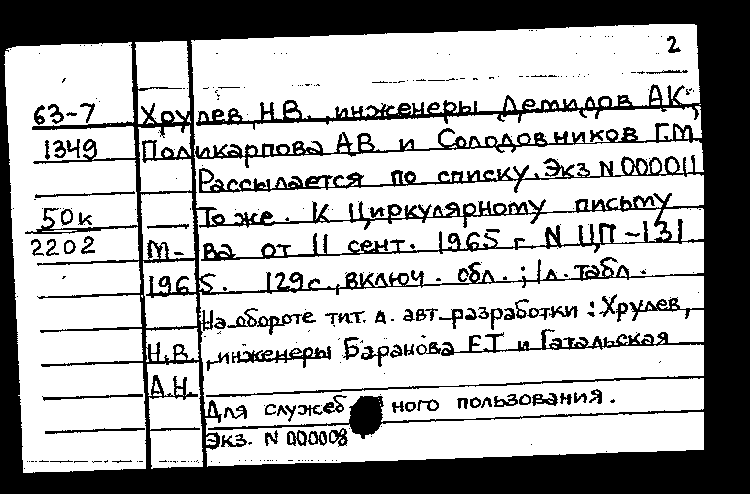 2
63-7 Хрулев, Н.В., инженеры Демидов А.К.,
1349 Поликарпова А.В и Солодовников Г.М
Рассылается по списку. Экз N 000011
50к То же. К Циркулярному письму
2202 М-ва от 11 сент. 1965 г. N ЦП-131
1965. 129с., включ. обл.; 1л. табл.
На обороте тит. л. авт. разработки: Хрулев,
Н.В., инженеры Баранова Е.Т и Гатальская
А.Н.
Для служебного пользования.
Экз. N 000008